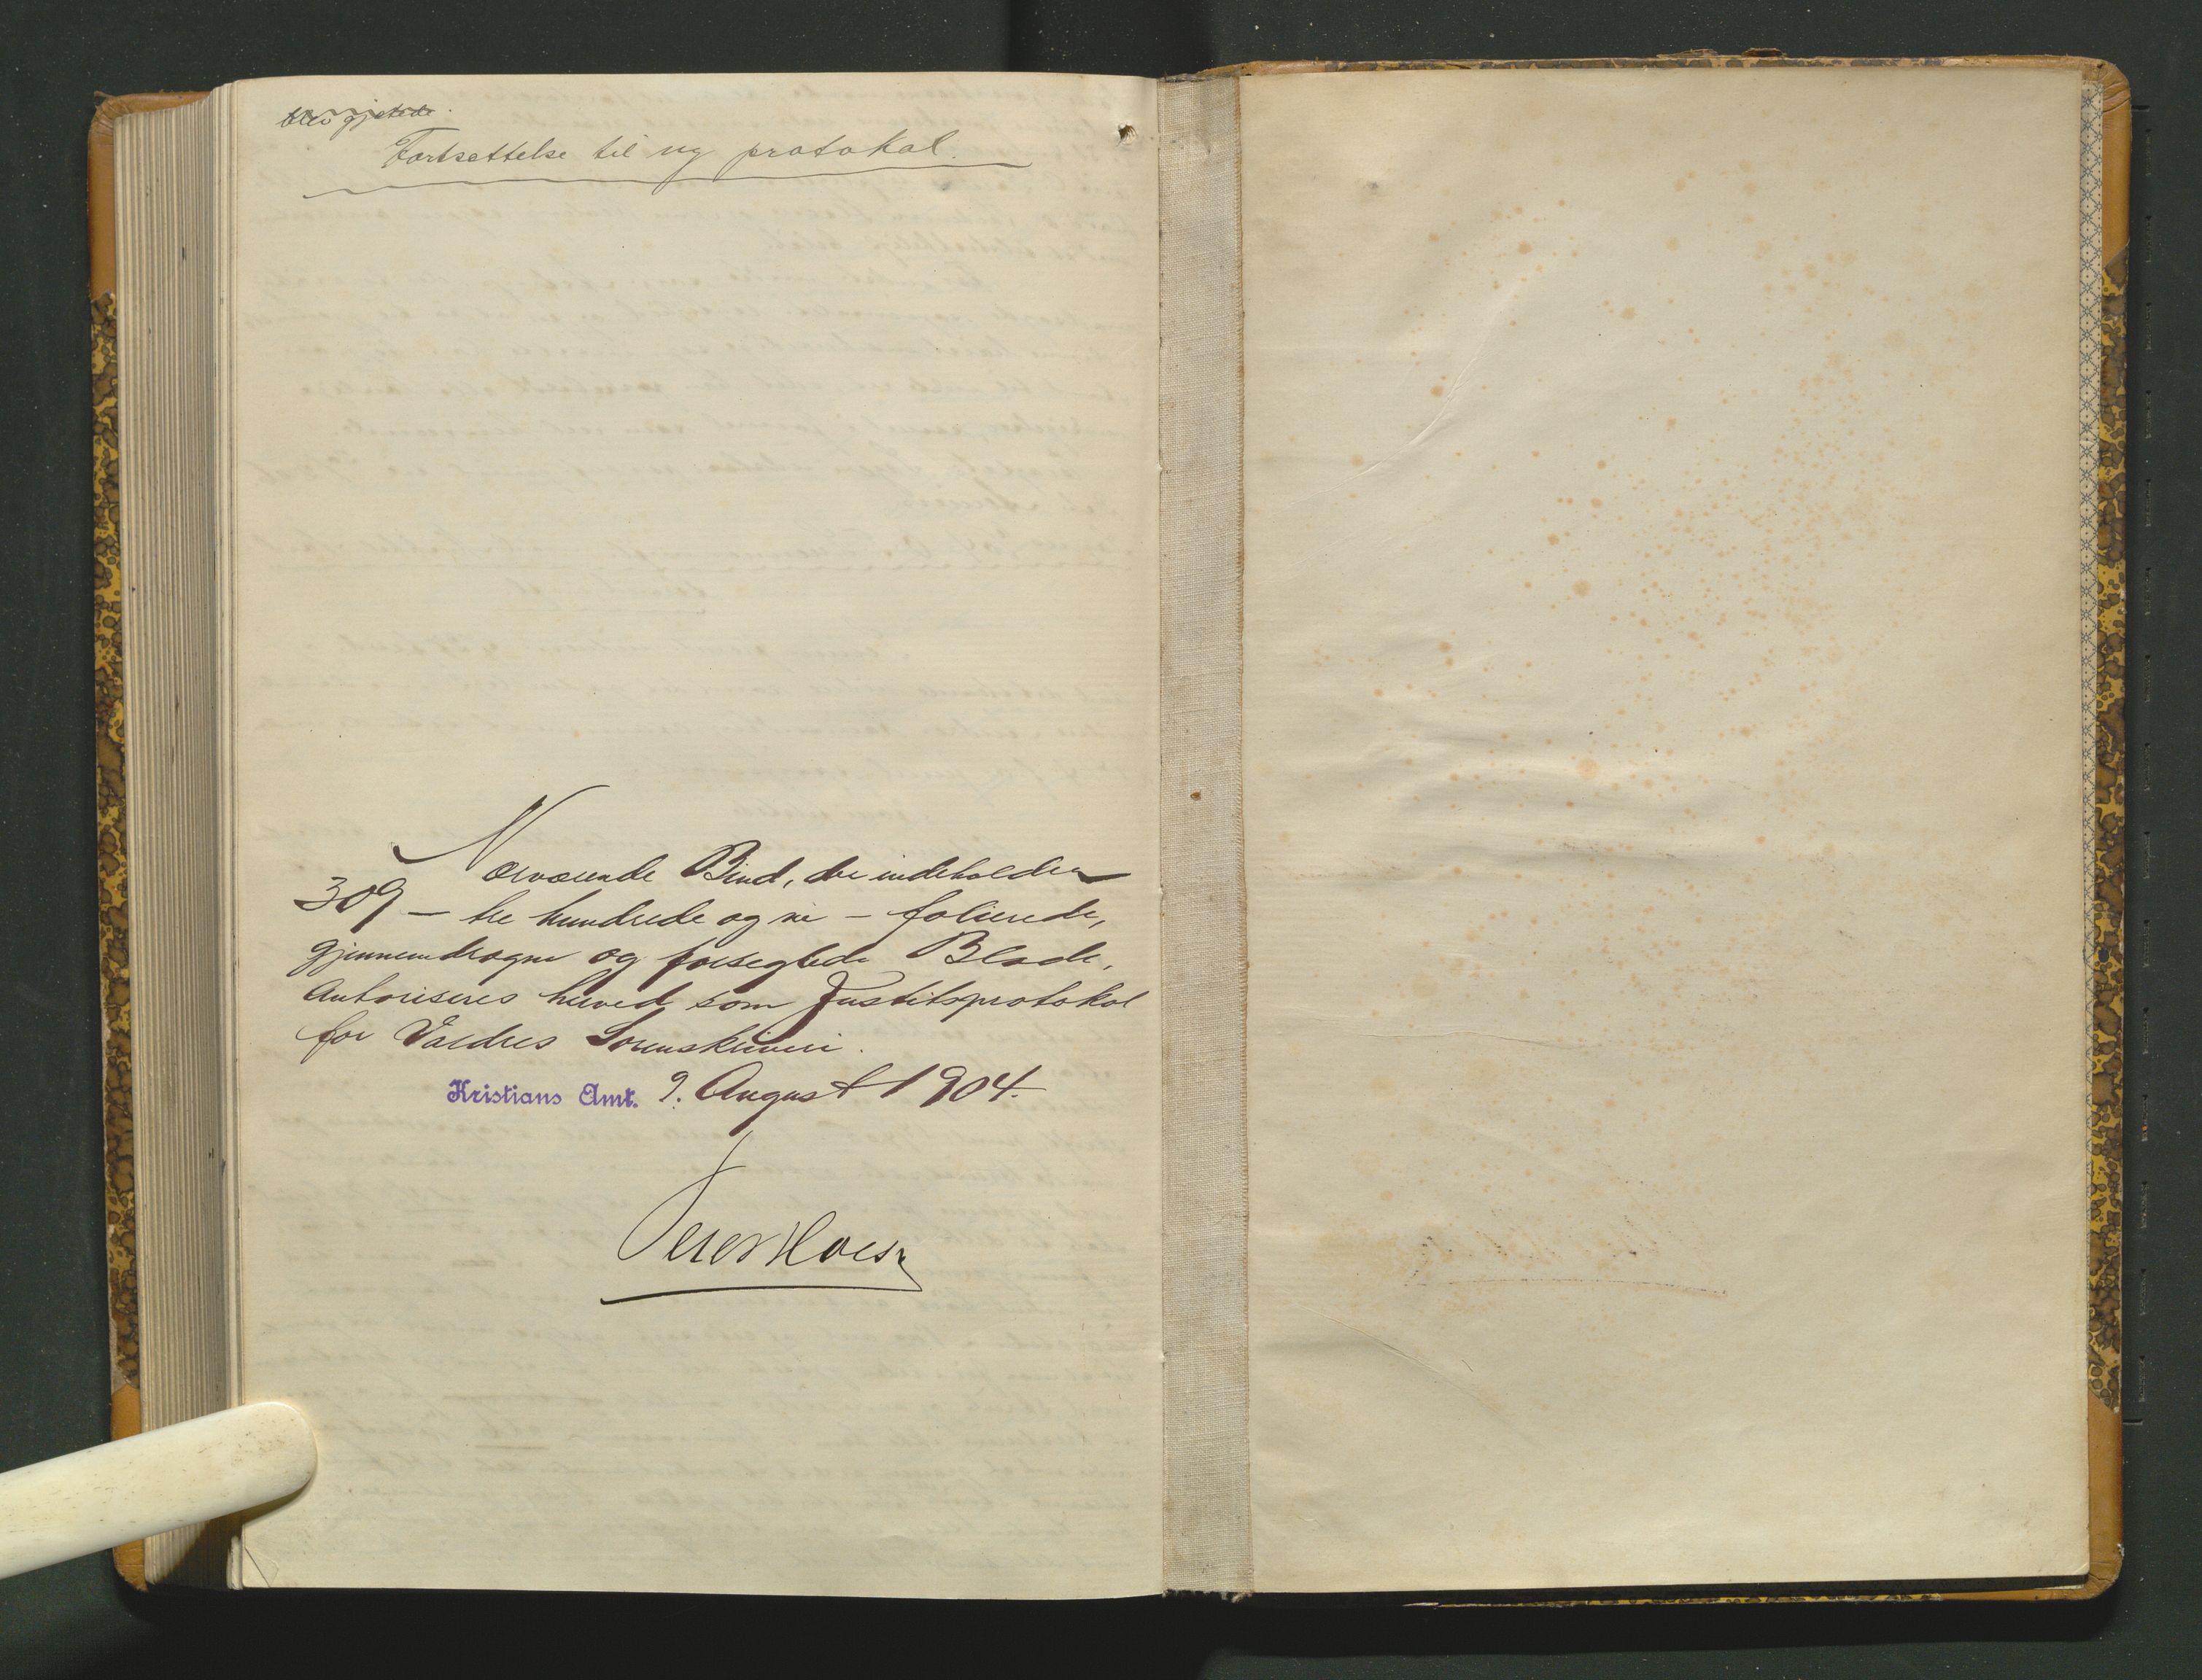 Fortsættelse til ny protokol.
Nærværende Bind, der indeholder
309 — tre hundrede og ni — folierede,
gjennemdragne og forseglede Blade,
Autoriseres herved som Justitsprotokol
for Valdres Sorenskriveri.
Kristians Amt. 9. August 1904.